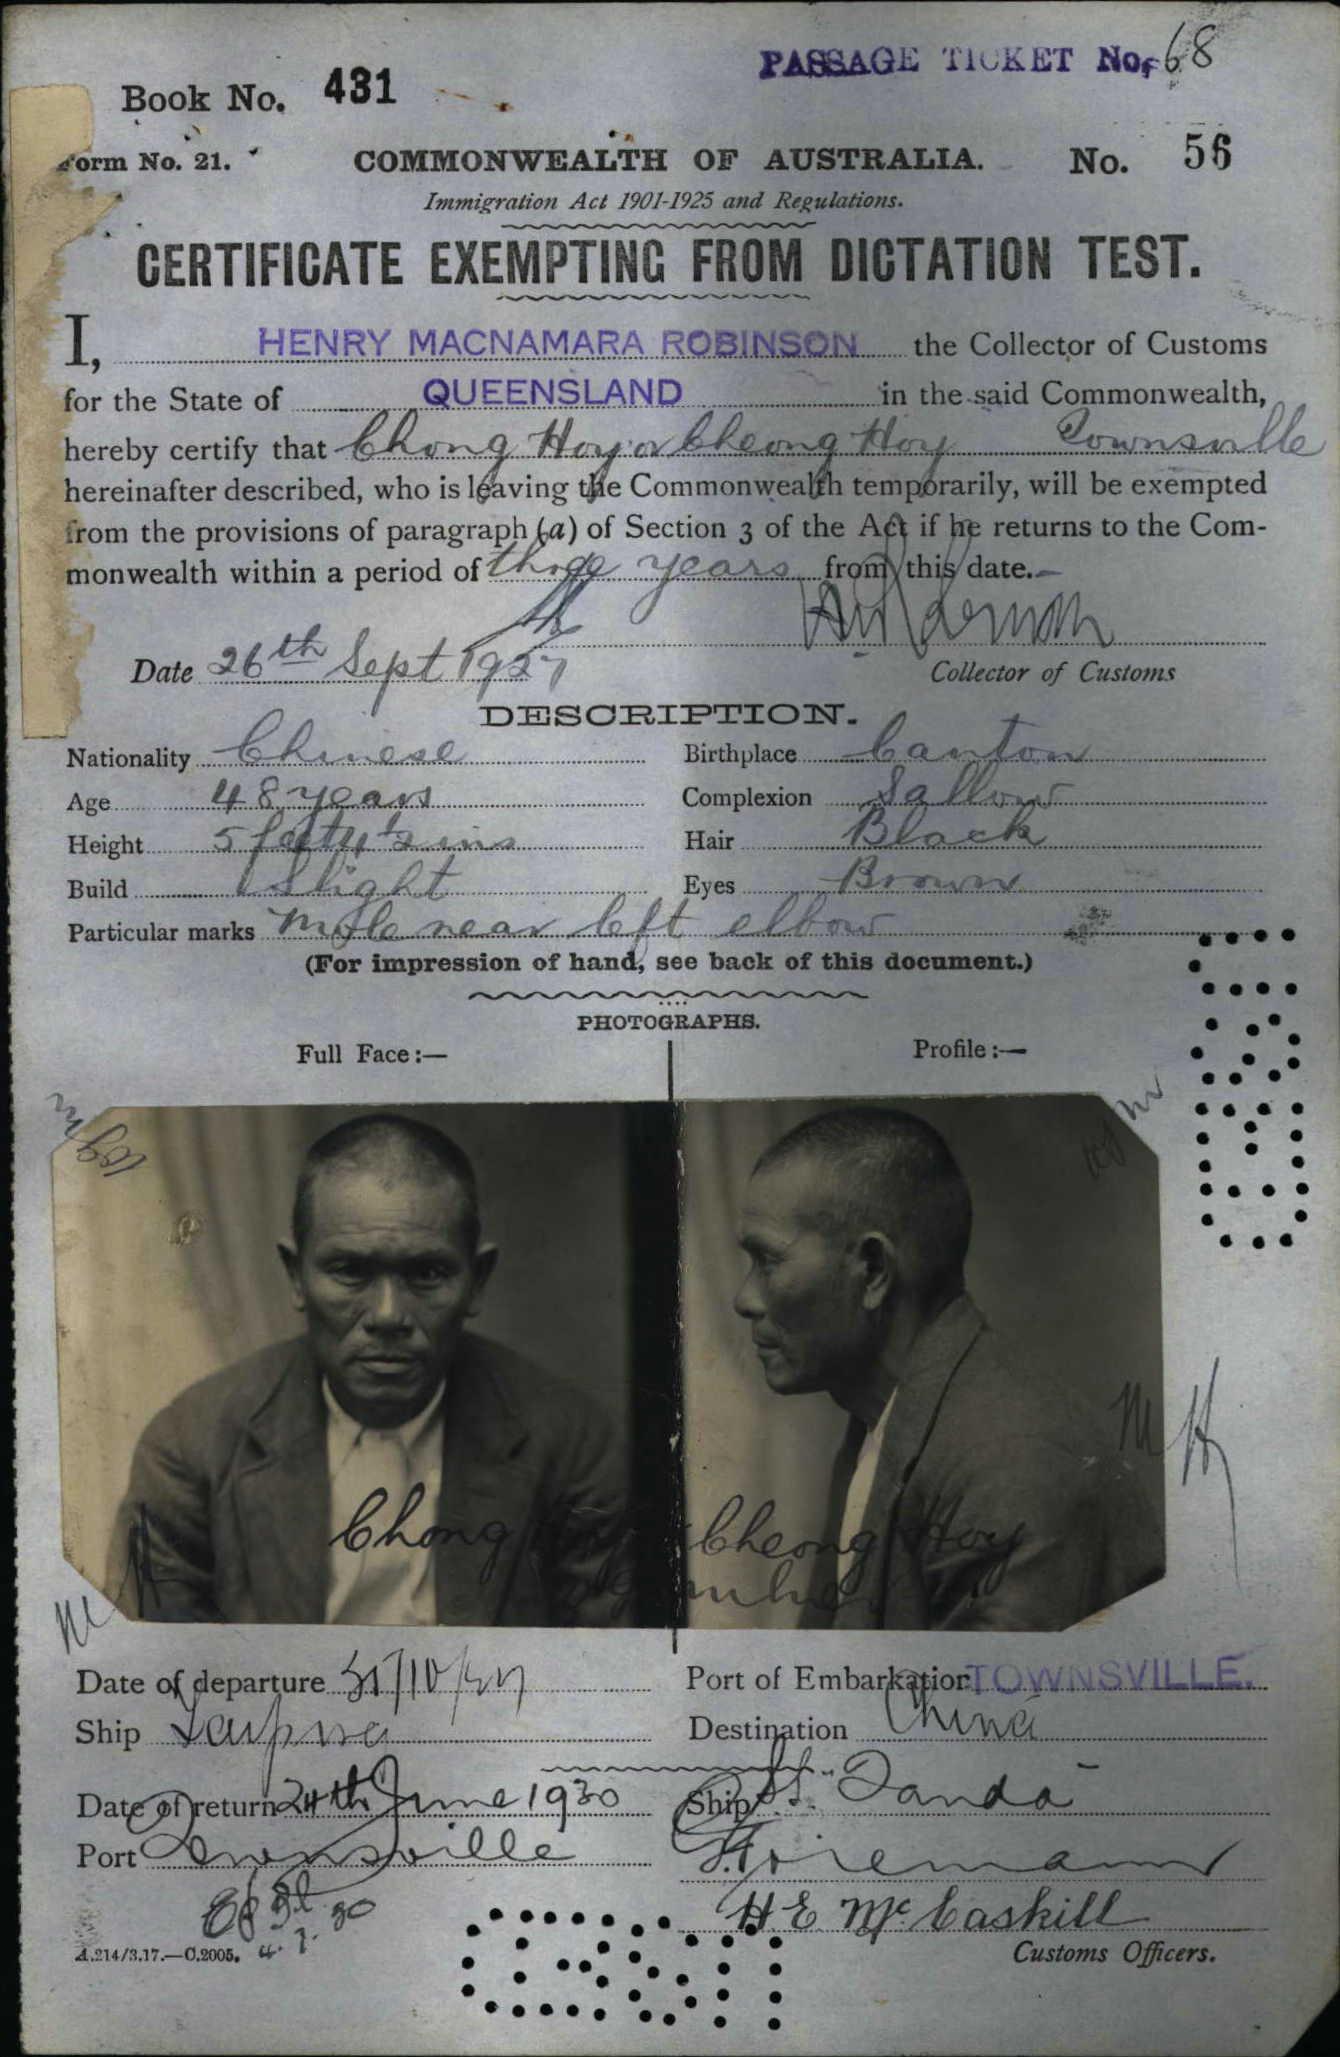 PASSAGE TICKET No. 68
Book No. 431
Form No. 21.
COMMONWEALTH OF AUSTRALIA.
No. 56
Immigration Act 1901-1925 and Regulations.
CERTIFICATE EXEMPTING FROM DICTATION TEST.
I, HENRY MACNAMARA ROBINSON the Collector of Customs
for the State of QUEENSLAND in the said Commonwealth,
hereby certify that Chong Hoy or Cheong Hoy Townsville
hereinafter described, who is leaving the Commonwealth temporarily, will be exempted
from the provisions of paragraph (a) of Section 3 of the Act if he returns to the Com-
monwealth within a period of three years from this date.—
Date 26th Sept 1927
Collector of Customs
DESCRIPTION.
Nationality Chinese Birthplace Canton
Age 48 years Complexion Sallow
Height 5 feet 4 1/2 ins Hair Black
Build Slight Eyes Brown
Particular marks Mole near left elbow
(For impression of hand, see back of this document.)
PHOTOGRAPHS.
Full Face:— Profile:—
MH
Chong Hoy Cheong Hoy
MH
Date of departure 31/10/27 Port of Embarkation TOWNSVILLE.
Ship Taiping Destination China
Date of return 24th June 1930 Ship SS. "Tanda"
Port Townsville
H. E. McCaskill
A.214/3.17.—C.2005. 4.7.30
Customs Officers.